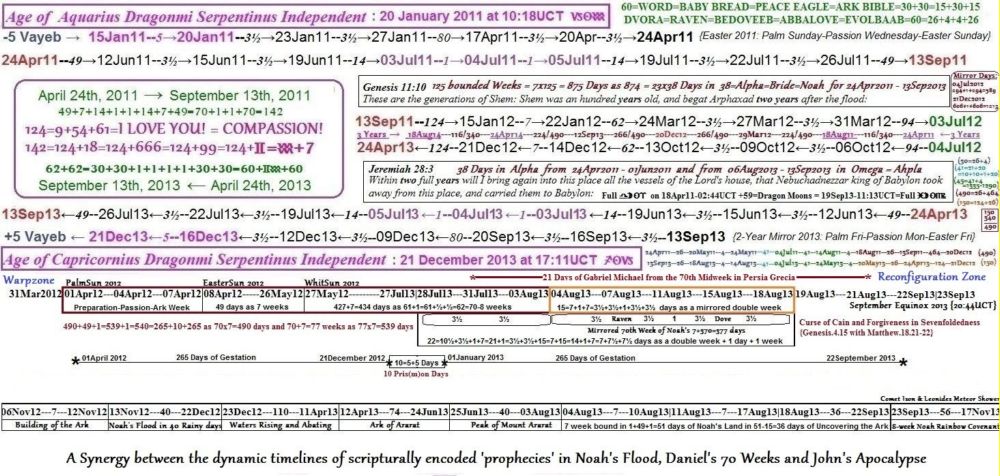 Age of Aquarius Dragonmi Serpentinus Independent : 20 January 2011 at 10:18UCT
60=WORD=BABY BREAD=PEACE EAGLE=ARK BIBLE=30+30=15+30+15
DVORA=RAVEN=BEDOVEEB=ABBALOVE=EVOLBAAB=60=26+4+4+26
-5 Vayeb → 15Jan11--5→20Jan11--3½→23Jan11--3½→27Jan11--80→17Apr11--3½→20Apr--3½→24Apr11 {Easter 2011: Palm Sunday-Passion Wednesday-Easter Sunday}
24Apr11--49→12Jun11--3½→15Jun11--3½→19Jun11--14→03Jul11--1→04Jul11--1→05Jul11--14→19Jul11--3½→22Jul11--3½→26Jul11--49→13Sep11
April 24th, 2011 → September 13th, 2011
49+7+14+1+1+14+7+49=70+1+1+70=142
124=9+54+61=I LOVE YOU! = COMPASSION!
142=124+18=124+666=124+99=124+II=♒+7
62+62=30+30+1+1+1+1+30+30=60+II♒+60
September 13th, 2013 ← April 24th, 2013
Genesis 11:10 125 bounded Weeks = 7x125 = 875 Days as 874 = 23x38 Days in 38=Alpha=Bride=Noah for 24Apr2011 - 13Sep2013
These are the generations of Shem: Shem was an hundred years old, and begat Arphaxad two years after the flood:
Mirror Days:
13Sep11--124→15Jan12--7→22Jan12--62→24Mar12--3½→27Mar12--3½→31Mar12--94→03Jul12
3 Years → 18Aug14---116/340---24Apr14---224/490---12Sep13---266/490---20Dec12---266/490---29Mar12---224/490---18Aug11---116/340 ← 3 Years
24Apr13←124--21Dec12←7--14Dec12←62--13Oct12←3½--09Oct12←3½--06Oct12←94--04Jul12
Jeremiah 28:3 38 Days in Alpha from 24Apr2011 - 01Jun2011 and from 06Aug2013 - 13Sep2013 in Omega = Ahpla
Within two full years will I bring again into this place all the vessels of the Lord's house, that Nebuchadnezzar king of Babylon took
away from this place, and carried them to Babylon: Full on 18Apr11-02:44UCT +59=Dragon Moons = 19Sep13-11:13UCT=Full
13Sep13←49--26Jul13←3½--22Jul13←3½--19Jul13←14--05Jul13←1--04Jul13←1--03Jul13←14--19Jun13←3½--15Jun13←3½--12Jun13←49--24Apr13
+5 Vayeb ← 21Dec13←5--16Dec13←3½--12Dec13←3½--09Dec13←80--20Sep13←3½--16Sep13←3½--13Sep13 {2-Year Mirror 2013: Palm Fri-Passion Mon-Easter Fri}
(130
340
490)
Age of Capricornius Dragonmi Serpentinus Independent : 21 December 2013 at 17:11UCT
Warpzone
21 Days of Gabriel Michael from the 70th Midweek in Persia Grecia
Reconfiguration Zone
PalmSun 2012 EasterSun 2012 WhitSun 2012
31Mar2012|01Apr12----04Apr12----07Apr12|08Apr12------26May12|27May12------27Jul13|28Jul13---31Jul13---03Aug13|04Aug13---07Aug13---11Aug13---15Aug13---18Aug13|19Aug13---21Aug13---22Sep13|23Sep13
Preparation-Passion-Ark Week | 49 days as 7 weeks | 427+7=434 days as 61+1=61+½+½+½=62=70-8 weeks | 15=7+1+7=3½+3½+1+3½+3½ days as a mirrored double week
September Equinox 2013 {20:44UCT}
490+49+1=539+1=540=265+10+265 as 70x7=490 days and 70+7=77 weeks as 77x7=539 days
3½ 3½ 3½ Raven 1 Dove 3½
Mirrored 70th Week of Noah's 7+570=577 days
22=10½+3½+1+7=21+1=3½+3½+15=7+15=14+1+7=7+7½+7½ days as a double week + 1 day + 1 week
Curse of Cain and Forgiveness in Sevenfoldedness
{Genesis.4.15 with Matthew.18.21-22}
01April2012 265 Days of Gestation 21December2012 10=5+5 Days 01January2013 265 Days of Gestation 22September2013
10 Pris(m)on Days
Comet Ison & Leonides Meteor Shower
06Nov12---7---12Nov12|13Nov12---40---22Dec12|23Dec12---110---11Apr13|12Apr13---74---24Jun13|25Jun13---40---03Aug13|04Aug13---7---10Aug13|11Aug13---7---17Aug13|18Aug13---36---22Sep13|23Sep13---56---17Nov13
Building of the Ark | Noah's Flood in 40 Rainy days | Waters Rising and Abating | Ark of Ararat | Peak of Mount Ararat | 7 week bound in 1+49+1=51 days of Noah's Land in 51-15=36 days of Uncovering the Ark | 8-week Noah Rainbow Covenant
A Synergy between the dynamic timelines of scripturally encoded 'prophecies' in Noah's Flood, Daniel's 70 Weeks and John's Apocalypse